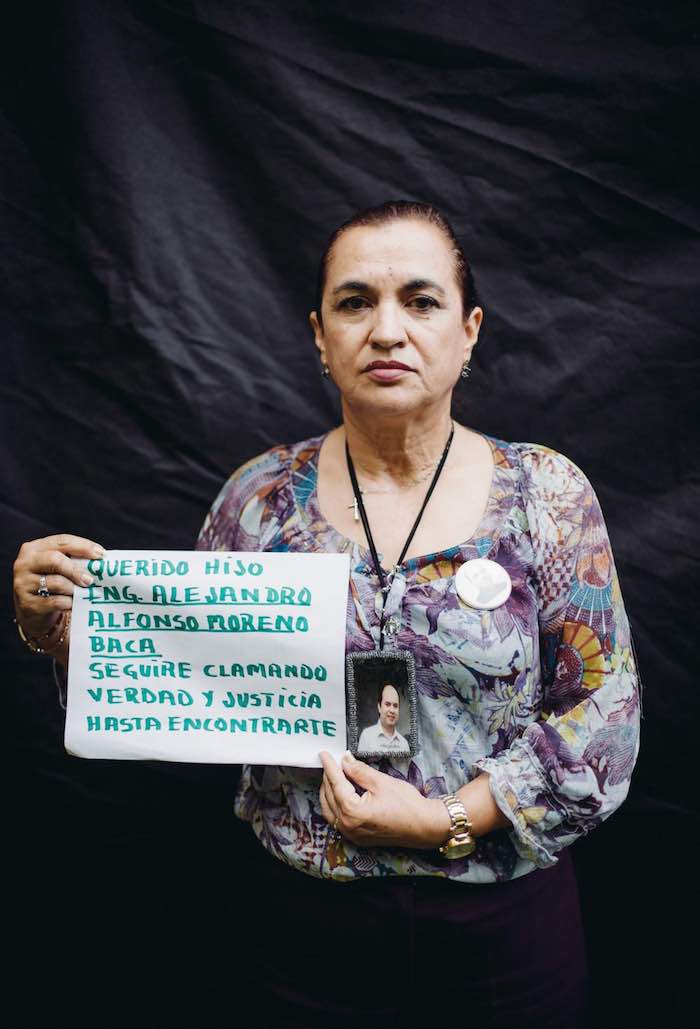 QUERIDO HIJO
ING. ALEJANDRO
ALFONSO MORENO
BACA
SEGUIRE CLAMANDO
VERDAD Y JUSTICIA
HASTA ENCONTRARTE